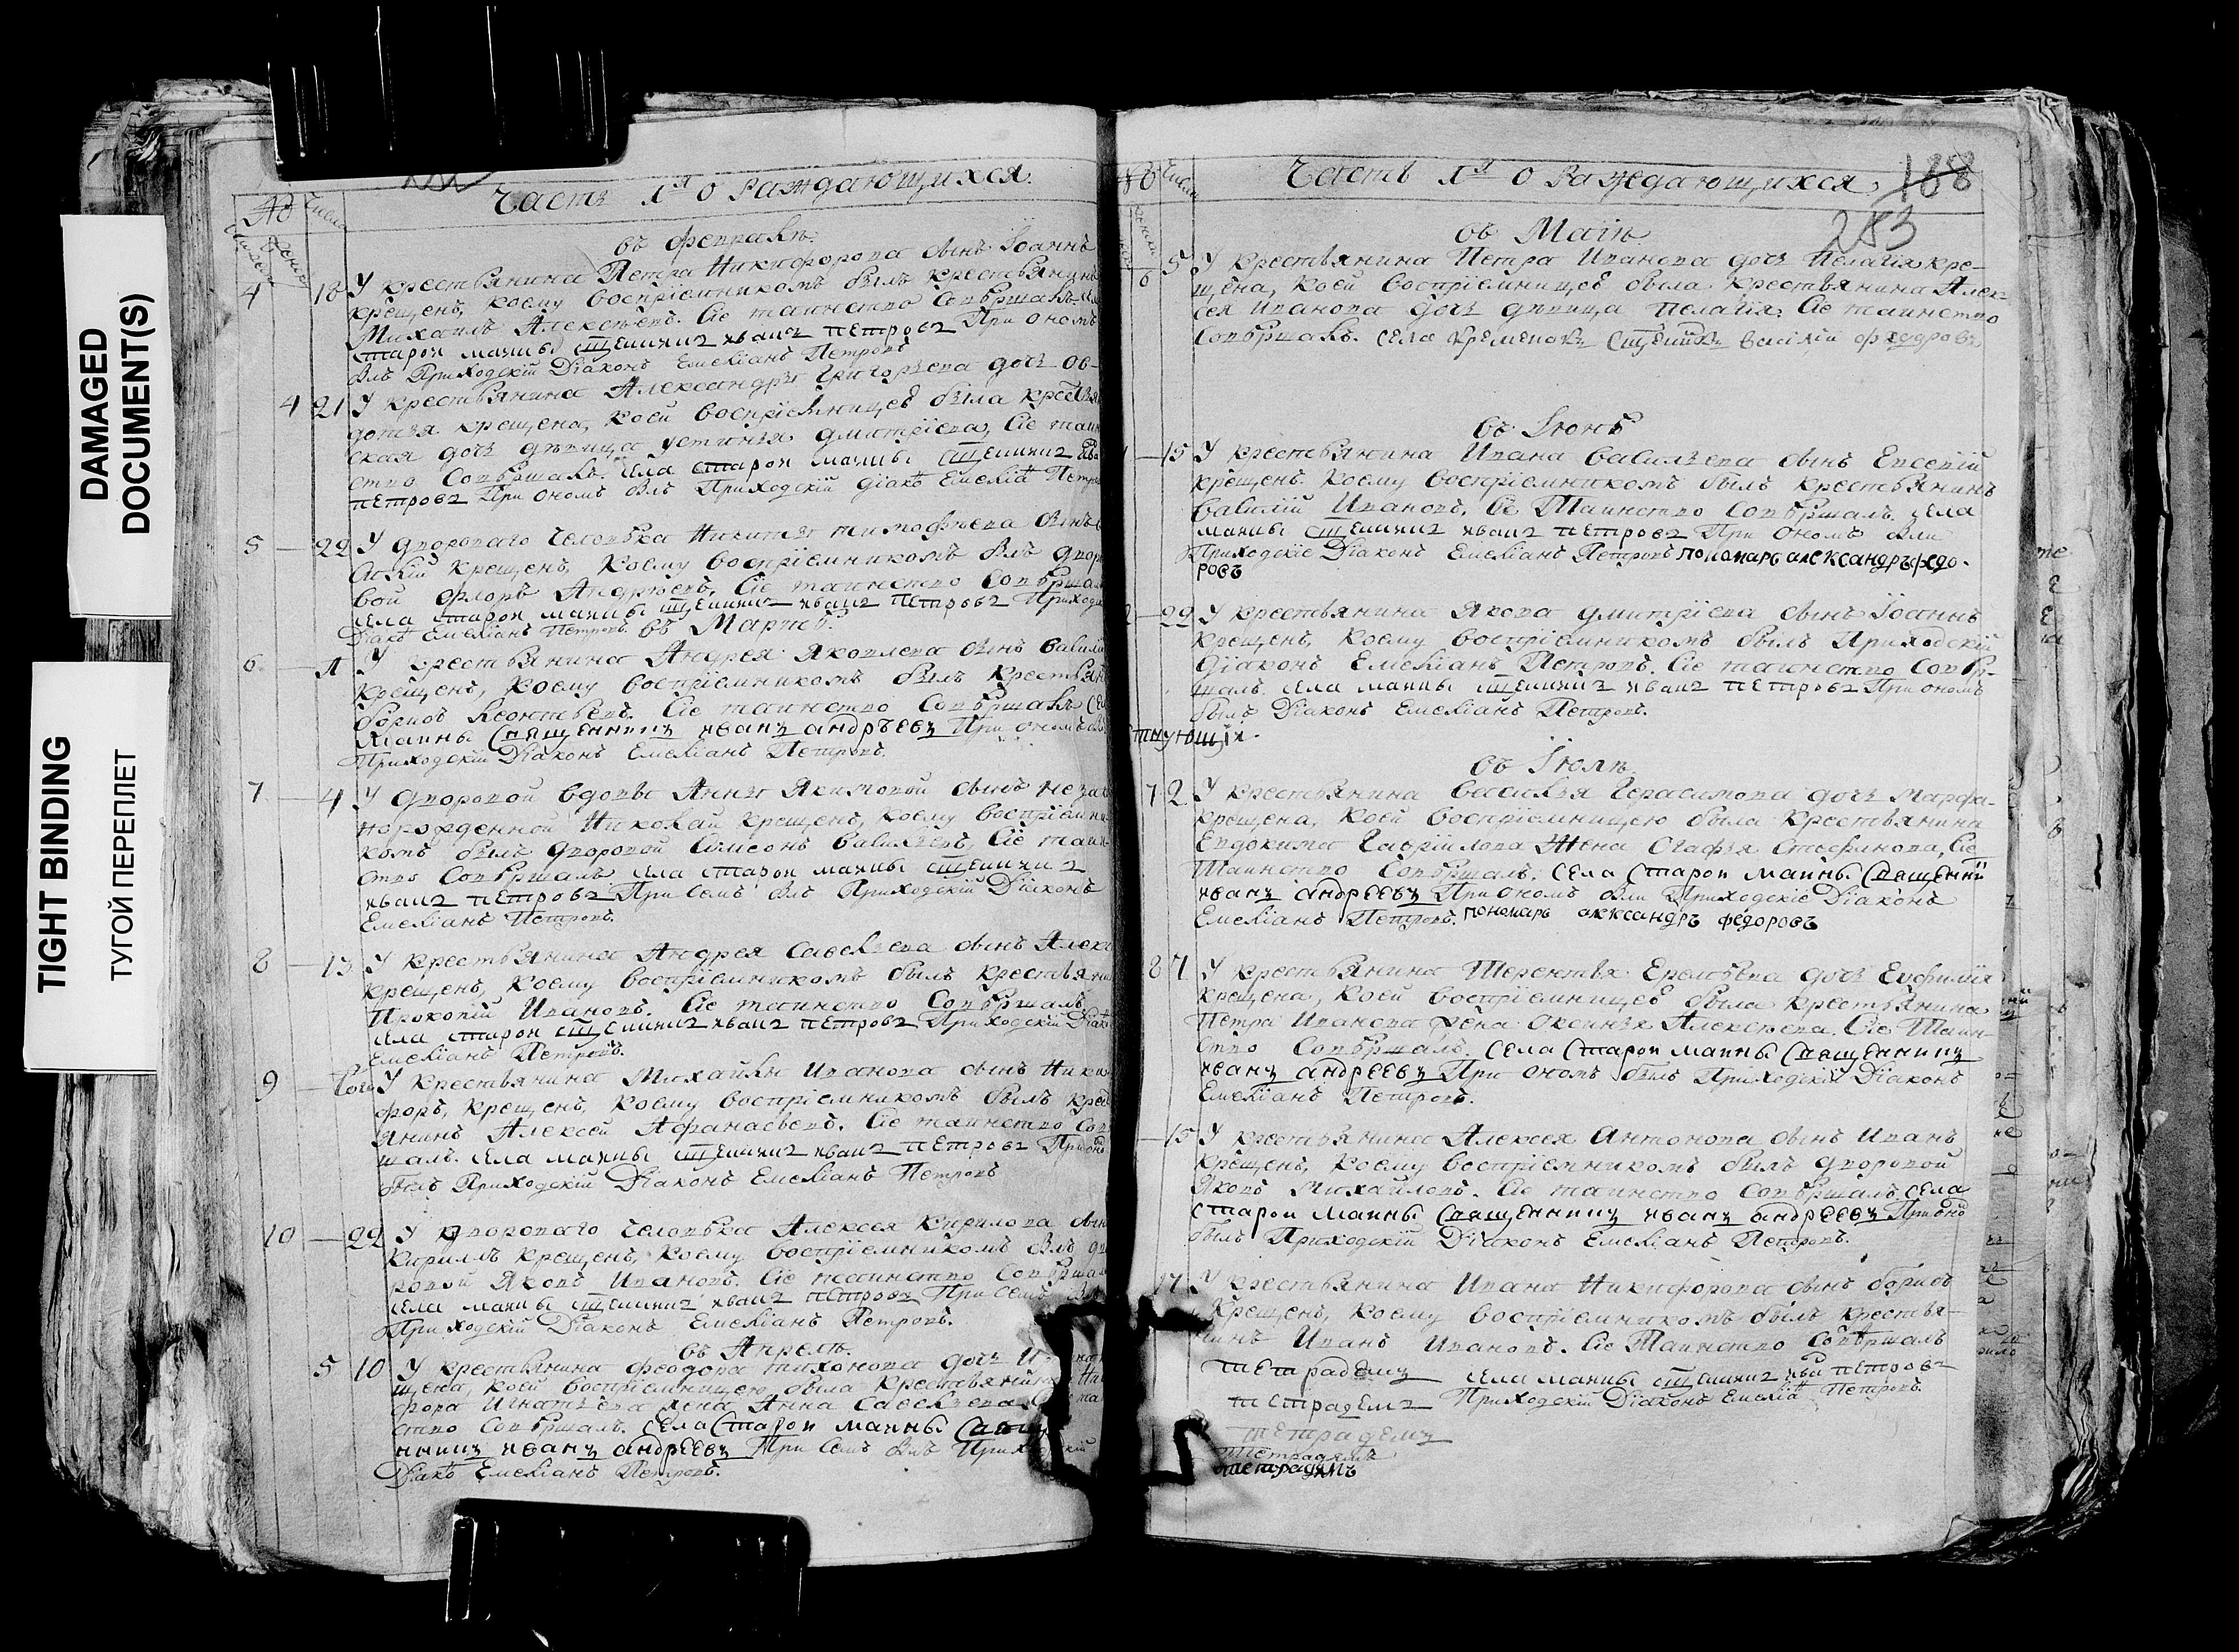 DAMAGED
DOCUMENT(S)
TIGHT BINDING
ТУГОЙ ПЕРЕПЛЕТ
Часть 1я о раждающихся.
въ Февралѣ.
4 18 У крестьянина Петра Никифорова сынъ Іоаннъ
крещенъ, коему воспріемникомъ былъ крестьянинъ
Михаилъ Алексѣевъ. Сіе таинство Совѣршалъ
старои маины Сщенникъ иванъ петровъ При ономъ
былъ Приходскій Діаконъ Емеліанъ Петровъ
4 21 У крестьянина Александры Григорьева дочь Ов-
дотья крещена, коей воспріемницеѣ была крестьян
ская дочь дѣвица устинья дмитріева, Сіе таин
ство Совѣршалъ. села старои маины Сщенникъ ива
петровъ При ономъ былъ Приходскій діакъ Емеліа Петров
5 22 У двороваго человѣка Никиты тимофѣева сынъ
крещенъ, коему воспріемникомъ былъ двор
вой Флоръ Андрѣевъ, Сіе таинство Совѣршал
села старои маины Сщенникъ иванъ петровъ Приход
Діакъ Емеліанъ Петровъ. въ Мартѣ.
6 1 У крестьянина Андрея Яковлева сынъ Василі
крещенъ, коему воспріемникомъ былъ крестьян
борисъ Леонтьевъ. Сіе таинство Совѣршалъ Се
Маины Священникъ иванъ андрѣевъ При ономъ
Приходскій Діаконъ Емеліанъ Петровъ.
7 4 У дворовой вдовы Анны Якимовой сынъ незак
норожденной Николай крещенъ, коему воспріемни
комъ былъ дворовой Симеонъ Васильевъ, Сіе таин
ство Совѣршалъ села старои маины Сщенникъ
иванъ петровъ При семъ былъ Приходскій Діаконъ
Емеліанъ Петровъ.
8 13 У крестьянина Андрея Савельева сынъ Алекс
крещенъ, коему воспріемникомъ былъ крестьянин
Прокопій Ивановъ. Сіе таинство Совѣршалъ
села старои Сщенникъ иванъ петровъ Приходскій Діако
Емеліанъ Петровъ.
9 У крестьянина Михайлы Иванова сынъ Ники
форъ, крещенъ, коему воспріемникомъ былъ крест
янинъ Алексей Афанасьевъ. Сіе таинство Сов
шалъ. села маины Сщенникъ иванъ петровъ При оно
былъ Приходскій Діаконъ Емеліанъ Петровъ
10 22 У двороваго человѣка Алексея Кирилова сын
Кирилъ крещенъ, коему воспріемникомъ былъ дв
ровой Яковъ Ивановъ. Сіе таинство Совѣршал
села маины Сщенникъ иванъ петровъ При семъ
Приходскій Діаконъ Емеліанъ Петровъ.
въ Апрелѣ.
5 10 У крестьянина Феодора тихонова дочь
щена, коей воспріемницею была крестьянина Ни
фора Игнатьева жена Анна Савельева
ство Совѣршалъ. села Старои маины
иванъ андреевъ При семъ былъ Приходскій
Діакъ Емеліанъ Петровъ.
Часть 1я о раждающихся. 188
283
въ Маіѣ.
6 5 У крестьянина Петра Иванова дочь Пелагія кре-
щена, коей воспріемницеѣ была крестьянина Алек-
сея Иванова дочь дѣвица Пелагія. Сіе таинство
Совѣршалъ. села кременокъ Сщенникъ василіи федоровъ
въ Іюнѣ
15 У крестьянина Ивана Васильева сынъ Евсевій
крещенъ. коему воспріемникомъ былъ крестьянинъ
Василій Ивановъ. Сіе Таинство Совѣршалъ. села
маины Сщенникъ иванъ петровъ При ономъ были
Приходскіе Діаконъ Емеліанъ Петровъ пономарь александръ федо-
ровъ
22 У крестьянина Якова дмитріева сынъ Іоаннъ
крещенъ, коему воспріемникомъ былъ Приходскій
Діаконъ Емеліанъ Петровъ. Сіе таинство Совѣр-
шалъ. села маины Сщенникъ иванъ петровъ При ономъ
былъ Діаконъ Емеліанъ Петровъ.
въ Іюлѣ
7 2 У крестьянина Василья Герасимова дочь Марфа-
крещена, коей воспріемницею была крестьянина
Евдокима Гавріилова жена Огафья Стефанова, Сіе
Таинство Совѣршалъ. села Старои маины Священни
иванъ андреевъ При ономъ были Приходскіе Діаконъ
Емеліанъ Петровъ. пономарь александръ федоровъ
8 7 У крестьянина Терентья Еремѣева дочь Евфимія
крещена, коей воспріемницеѣ была крестьянина
Петра Иванова жена Оксинья Алексѣева. Сіе Таин-
ство Совѣршалъ. села Старои маины Священникъ
иванъ андреевъ При ономъ былъ Приходскій Діаконъ
Емеліанъ Петровъ.
15 У крестьянина Алексея Антонова сынъ Иванъ
крещенъ, коему воспріемникомъ былъ дворовой
Яковъ Михайловъ. Сіе таинство Совѣршалъ села
Старои маины Священникъ иванъ андреевъ При оно
былъ Приходскій Діаконъ Емеліанъ Петровъ.
17 У крестьянина Ивана Никифорова сынъ борисъ
крещенъ, коему воспріемникомъ былъ крестья-
нинъ Иванъ Ивановъ. Сіе Таинство Совѣршалъ
тетрадемъ села маины Сщенникъ ива петровъ
тетрадемъ Приходскій Діаконъ Емеліа Петровъ.
тетрадемъ
тетрадямъ
тетрадямъ